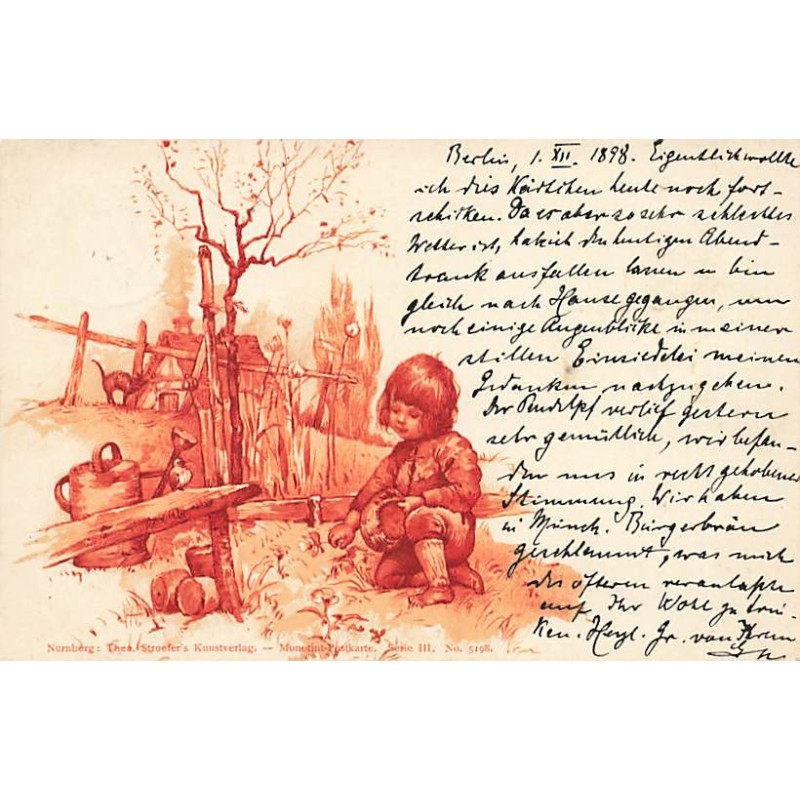 Berlin, 1. XII. 1898. Eigentlich wollte
ich dies Kärtchen heute noch fort-
schicken. Da es aber so sehr schlechtes
Wetter ist, hab ich den heutigen Abend-
trank ausfallen lassen u bin
gleich nach Hause gegangen, um
noch einige Augenblicke in meiner
stillen Einsiedelei meinen
Gedanken nachzugehen.
Der verlief gestern
sehr gemütlich, wir befan-
den uns in recht gehobener
Stimmung. Wir haben
in Münch. Bürgerbräu
geschlemmt, was mich
des öfteren veranlaßte
auf Ihr Wohl zu trin-
ken. Herzl. Gr. von Ihrem
Nürnberg: Theo. Stroefer's Kunstverlag. — Monotint-Postkarte. Serie III. No. 5198.